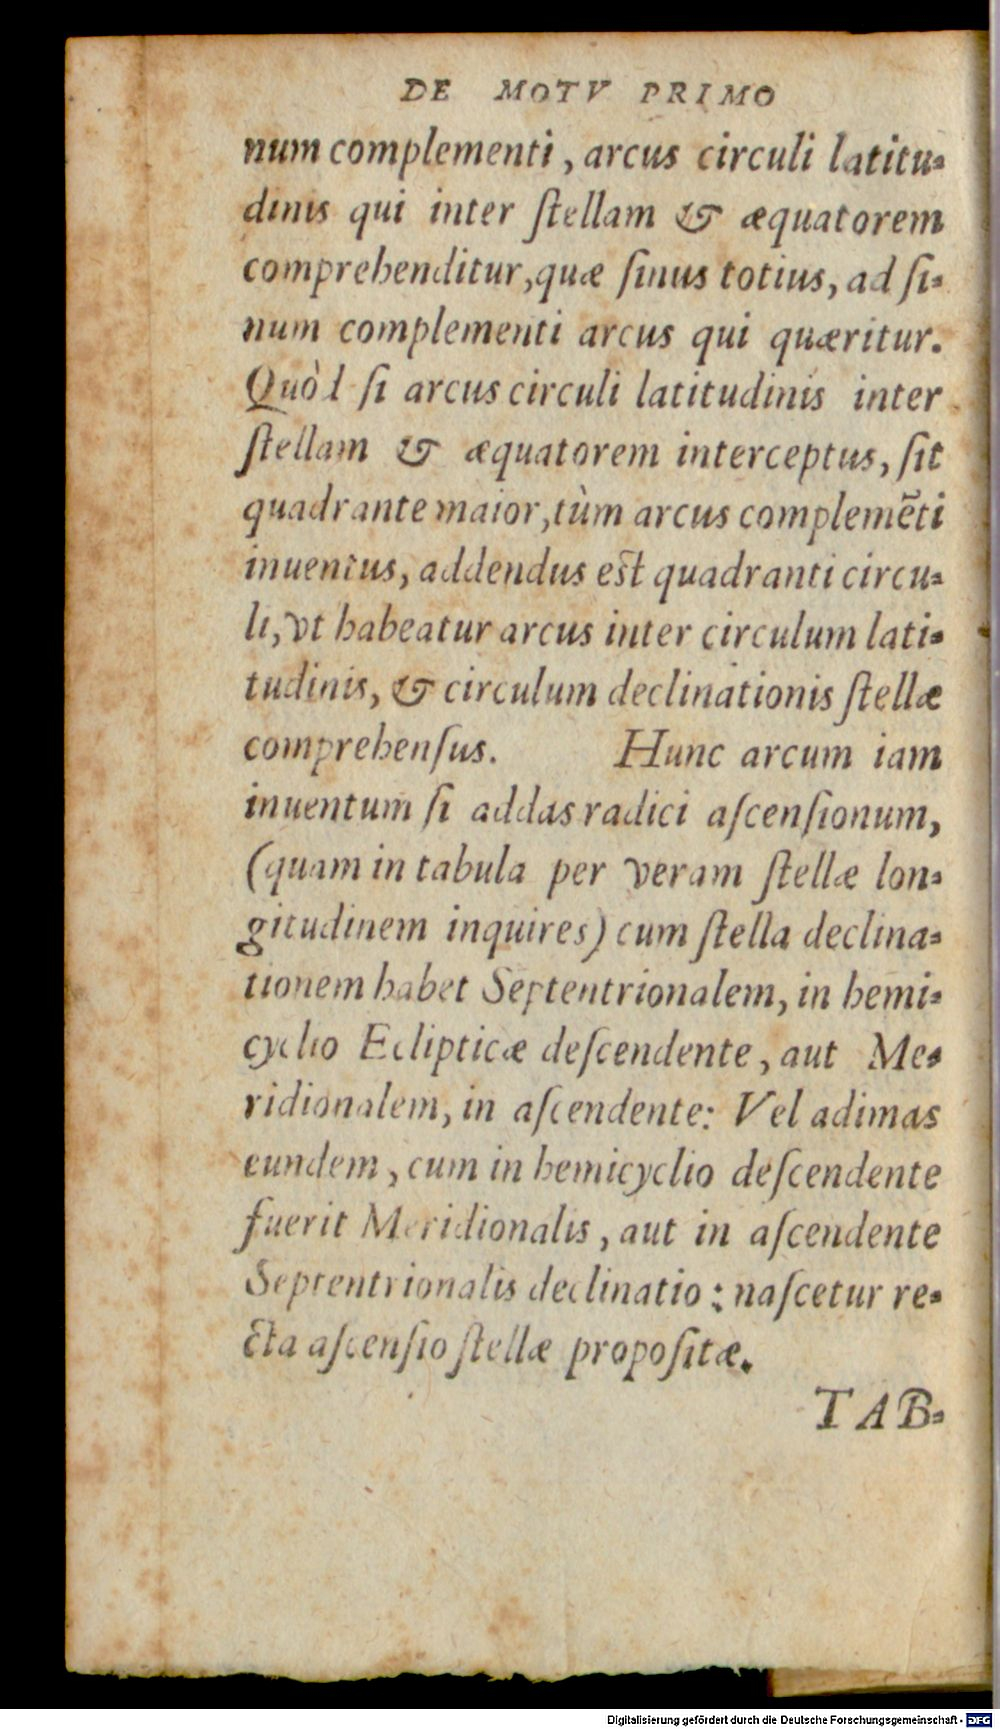 DE MOTV PRIMO
num complementi, arcus circuli latitu-
dinis qui inter ſtellam & æquatorem
comprehenditur, quæ ſinus totius, ad ſi-
num complementi arcus qui quæritur.
Quòd ſi arcus circuli latitudinis inter
ſtellam & æquatorem interceptus, ſit
quadrante maior, tùm arcus complemēti
inuentus, addendus eſt quadranti circu-
li, vt habeatur arcus inter circulum lati-
tudinis, & circulum declinationis ſtellæ
comprehenſus. Hunc arcum iam
inuentum ſi addas radici aſcenſionum,
(quam in tabula per veram ſtellæ lon-
gitudinem inquires) cum ſtella declina-
tionem habet Septentrionalem, in hemi-
cyclio Eclipticæ deſcendente, aut Me-
ridionalem, in aſcendente: Vel adimas
eundem, cum in hemicyclio deſcendente
fuerit Meridionalis, aut in aſcendente
Septentrionalis declinatio: naſcetur re-
cta aſcenſio ſtellæ propoſitæ.
TAB-
Digitalisierung gefördert durch die Deutsche Forschungsgemeinschaft - DFG